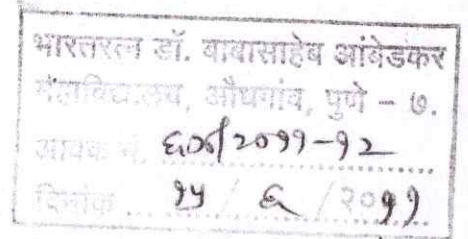 भारतरत्न डॉ. बाबासाहेब आंबेडकर
महाविद्यालय, औंधगांव, पुणे – ७.
आवक नं. /२०११-१२
दिनांक १५ / ६ / २०११